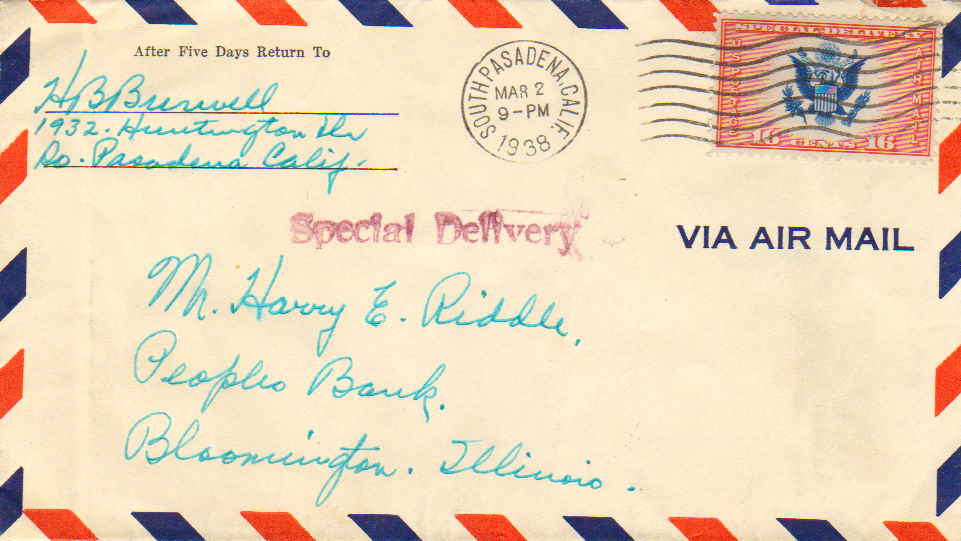 After Five Days Return To
H B Burwell
1932. Huntington Dr
So. Pasadena Calif.
SOUTH PASADENA, CALIF.
MAR 2
9-PM
1938
SPECIAL DELIVERY
AIR MAIL
16 CENTS 16
Special Delivery
VIA AIR MAIL
Mr. Harry E. Riddle,
Peoples Bank.
Bloomington. Illinois.